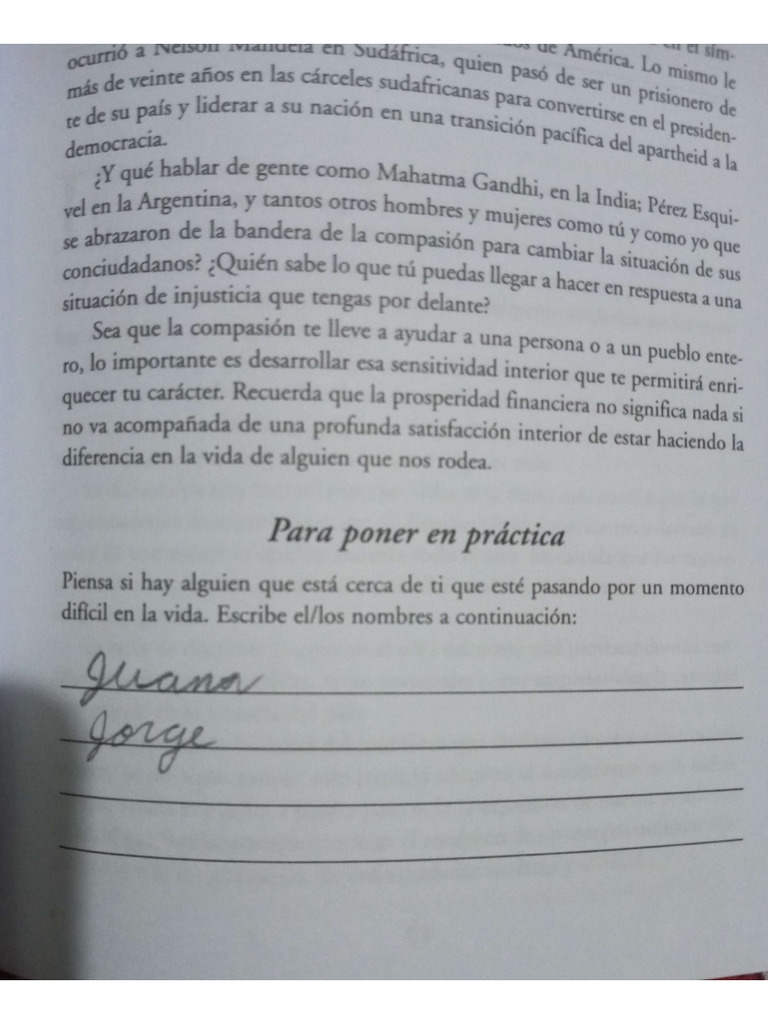 de América. Lo mismo le
ocurrió a Nelson Mandela en Sudáfrica, quien pasó de ser un prisionero de
más de veinte años en las cárceles sudafricanas para convertirse en el presiden-
te de su país y liderar a su nación en una transición pacífica del apartheid a la
democracia.
¿Y qué hablar de gente como Mahatma Gandhi, en la India; Pérez Esqui-
vel en la Argentina, y tantos otros hombres y mujeres como tú y como yo que
se abrazaron de la bandera de la compasión para cambiar la situación de sus
conciudadanos? ¿Quién sabe lo que tú puedas llegar a hacer en respuesta a una
situación de injusticia que tengas por delante?
Sea que la compasión te lleve a ayudar a una persona o a un pueblo ente-
ro, lo importante es desarrollar esa sensitividad interior que te permitirá enri-
quecer tu carácter. Recuerda que la prosperidad financiera no significa nada si
no va acompañada de una profunda satisfacción interior de estar haciendo la
diferencia en la vida de alguien que nos rodea.
Para poner en práctica
Piensa si hay alguien que está cerca de ti que esté pasando por un momento
difícil en la vida. Escribe el/los nombres a continuación:
Juana
Jorge